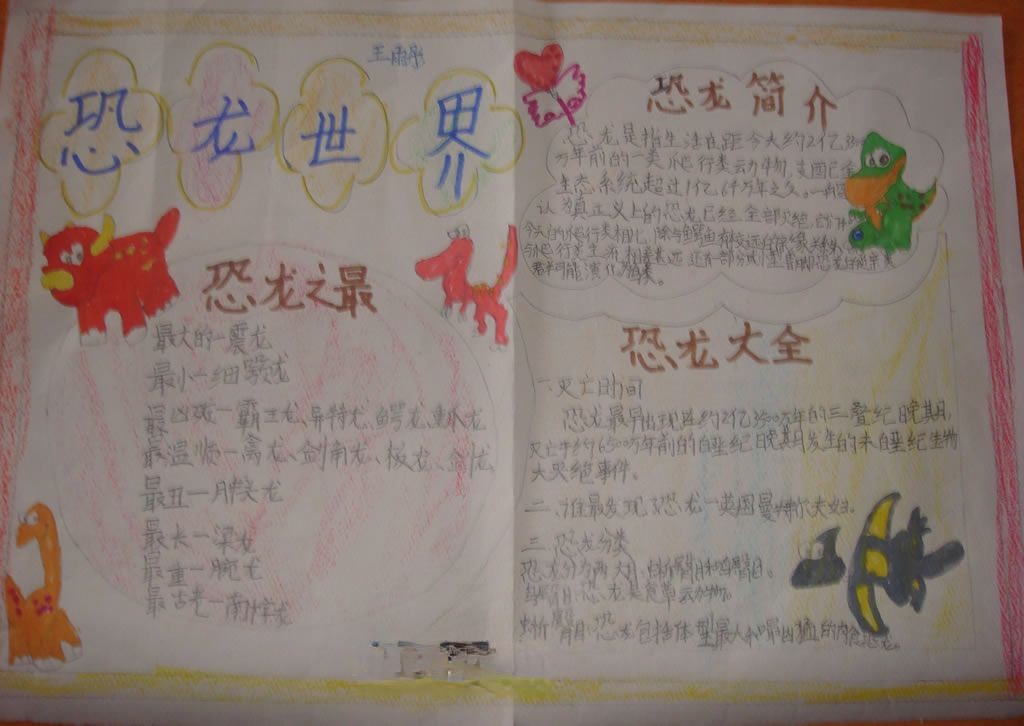 恐龙世界
王雨彤
恐龙之最
最大的—震龙
最小—细颚龙
最凶残—霸王龙、异特龙、鳄龙、重爪龙
最温顺—禽龙、剑角龙、板龙、剑龙
最丑—肿头龙
最长—梁龙
最重—腕龙
最古老—南十字龙
恐龙简介
恐龙是指生活在距今大约2亿3500
万年前的一类爬行类动物,支配
生态系统超过1亿6千万年之久。一
认为真正义上的恐龙已经全部灭绝,
今天的爬行类相比,除与鳄鱼有较近的亲缘关系
今爬行类生 相差甚远 还有部分小型兽脚恐龙
可能演化为鸟类。
恐龙大全
一.灭亡时间
恐龙最早出现在约2亿3500万年的三叠纪晚期,
灭亡于约6500万年前的白垩纪晚期发生的末白垩纪生物
大灭绝事件。
二、谁最发现了恐龙—英国曼特尔夫妇。
三.恐龙分类
恐龙分为两大目:蜥臀目和鸟臀目。
鸟臀目恐龙是食草动物。
蜥臀目恐龙包括体型最大和最凶猛的肉食恐龙。